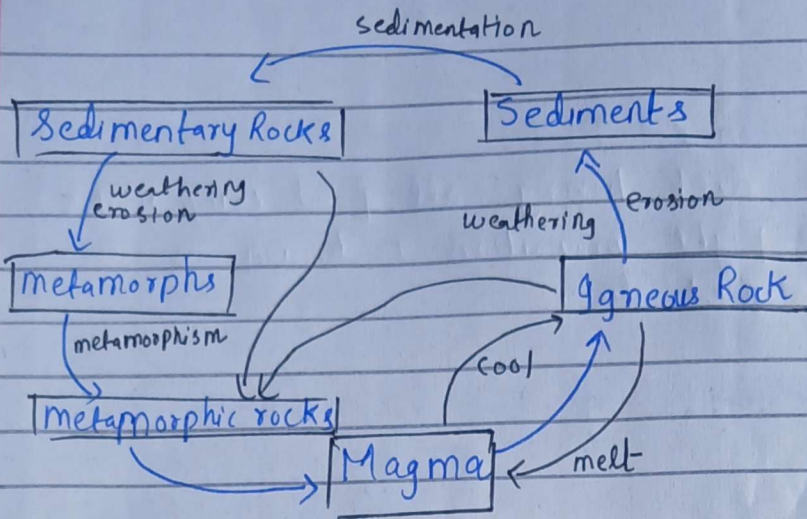 sedimentation
Sedimentary Rocks
Sediments
weathering
erosion
weathering
erosion
metamorphs
Igneous Rock
metamorphism
cool
metamorphic rocks
Magma
melt